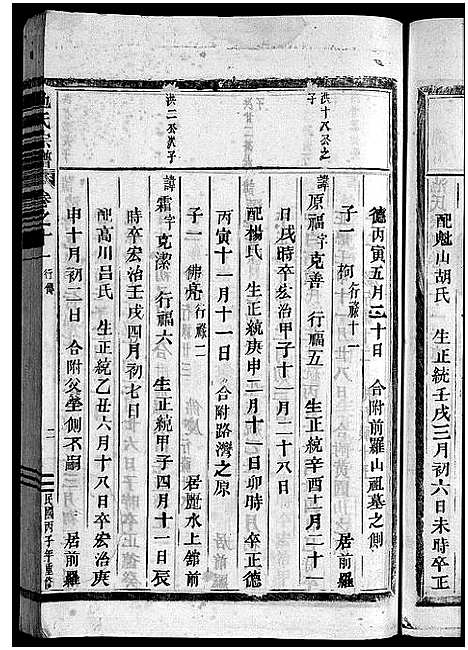 配魁山胡氏 生正統壬戌三月初六日未時卒正
德丙寅五月二十日 合附前羅山祖墓之側
子一 枸行祿十一 居前羅
洪十八公之子
諱原福字克善 行福五 生正統辛酉十一月二十一
日戌時卒宏治甲子十一月二十八日
配楊氏 生正統庚申二月十一日卯時 卒正德
丙寅十一月十一日 合附路灣之原
子一 佛亮行祿二 居麗水上館前
洪二公次子
諱霜字克潔 行福六 生正統甲子四月十一日辰
時卒宏治壬戌四月初七日
配高川呂氏 生正統乙丑六月十八日卒宏治庚
申十月初二日 合附父塋側不嗣 居前羅
氏宗譜 卷之十一 行傳 二 民國丙子年重修